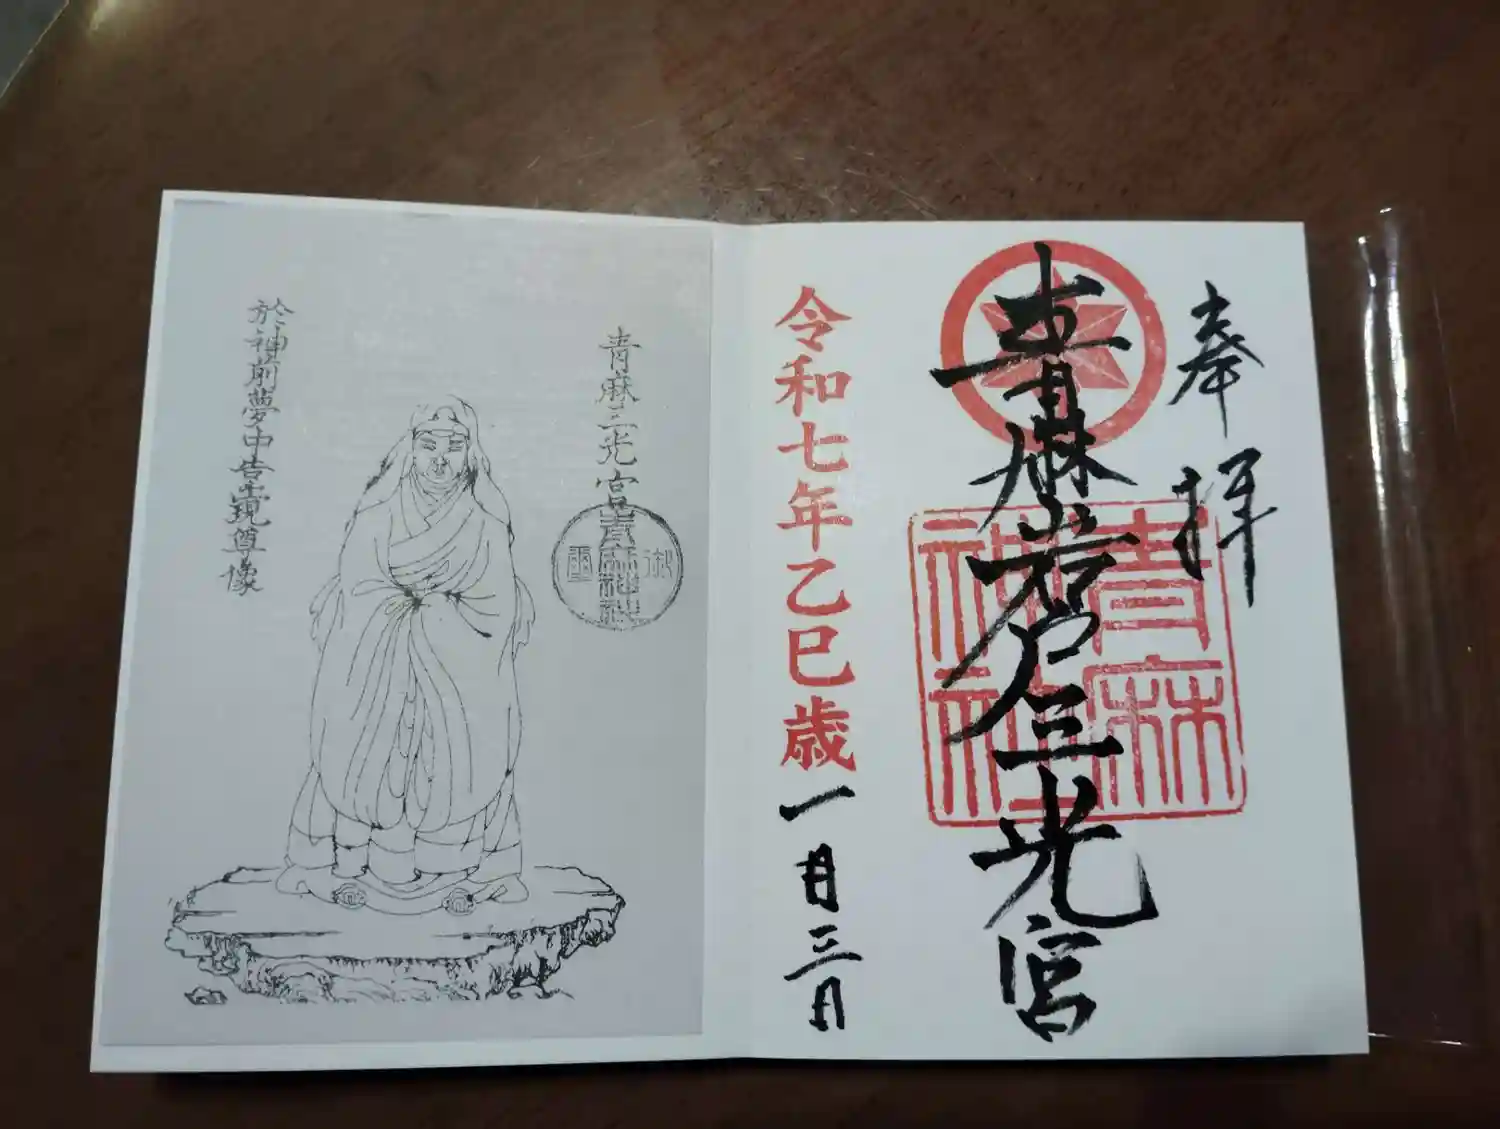 奉拝
青麻岩戸三光宮
青麻神社
令和七年乙巳歳一月三日
青麻三光宮
青麻神社
御璽
於神前夢中告現尊像